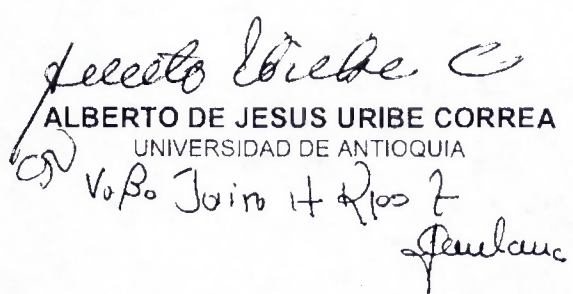 Alberto Uribe C
ALBERTO DE JESUS URIBE CORREA
UNIVERSIDAD DE ANTIOQUIA
VoBo Jairo H Rios